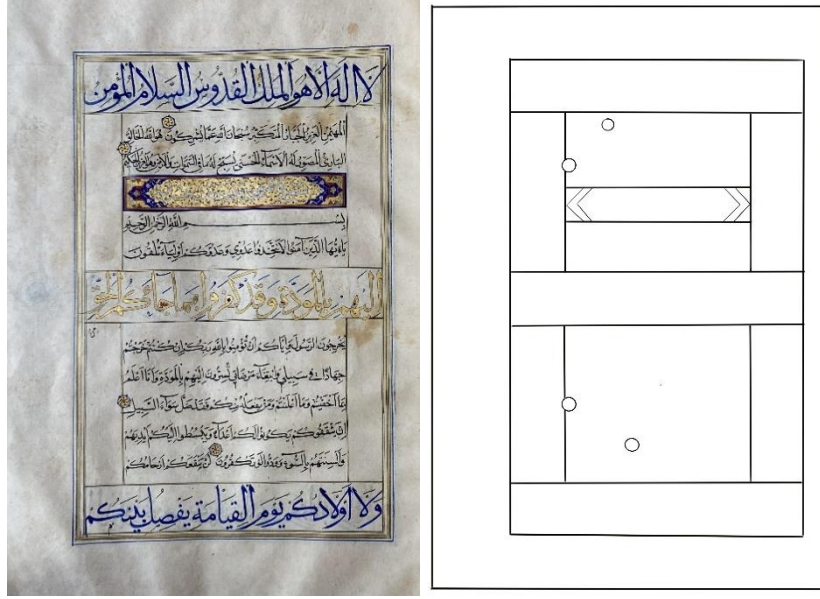 لا اله الا هو الملك القدوس السلام المؤمن
المهيمن العزيز الجبار المتكبر سبحان الله عما يشركون هو الله الخالق
البارئ المصور له الاسماء الحسنى يسبح له ما في السموات والارض وهو العزيز الحكيم
بسم الله الرحمن الرحيم
ياءيها الذين آمنوا لا تتخذوا عدوي وعدوكم اولياء تلقون
اليهم بالمودة وقد كفروا بما جاءكم من الحق
يخرجون الرسول واياكم ان تؤمنوا بالله ربكم ان كنتم خرجتم
جهادا في سبيلي وابتغاء مرضاتي تسرون اليهم بالمودة وانا اعلم
بما اخفيتم وما اعلنتم ومن يفعله منكم فقد ضل سواء السبيل
ان يثقفوكم يكونوا لكم اعداء ويبسطوا اليكم ايديهم
والسنتهم بالسوء وودوا لو تكفرون لن تنفعكم ارحامكم
ولا اولادكم يوم القيامة يفصل بينكم